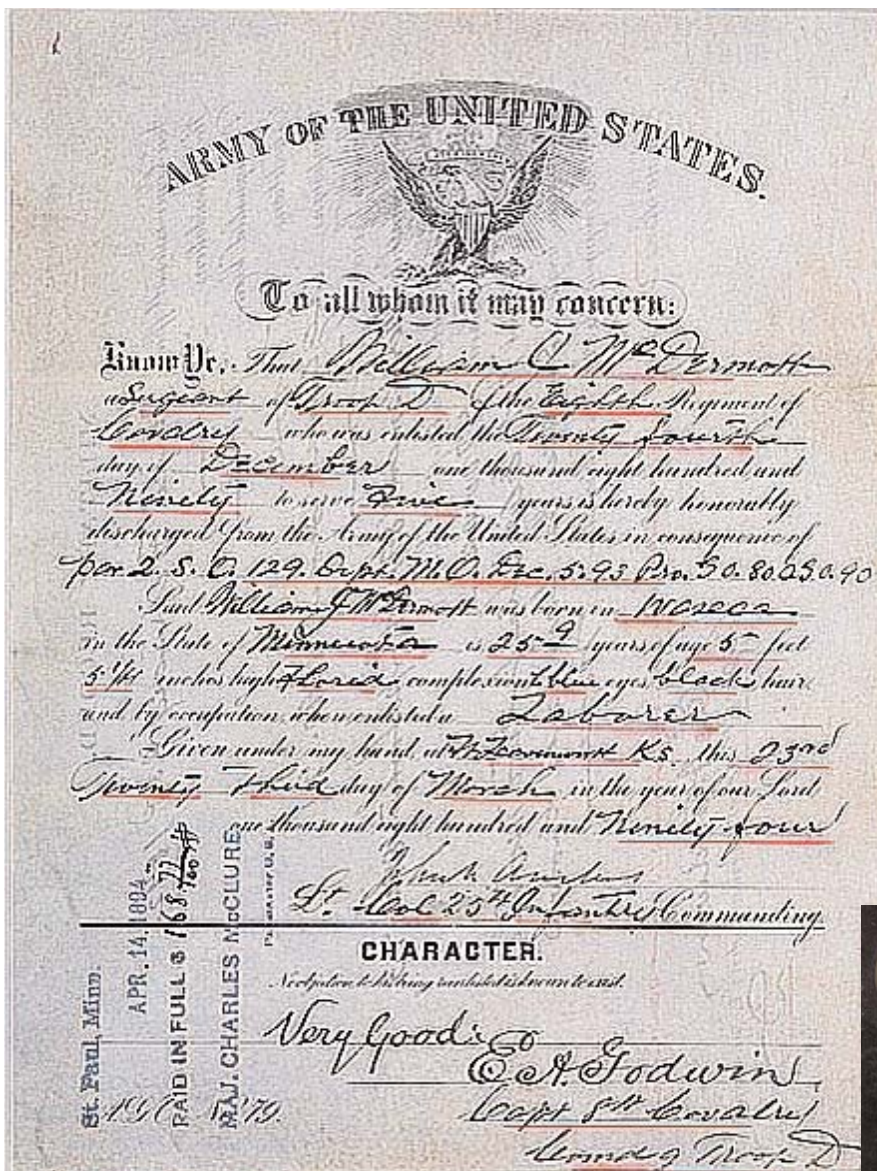 ARMY OF THE UNITED STATES.
To all whom it may concern:
Know Ye, That William C McDermott
a Sergeant of Troop D of the Eighth Regiment of
Cavalry who was enlisted the Twenty fourth
day of December one thousand eight hundred and
Ninety to serve Five years is hereby honorably
discharged from the Army of the United States in consequence of
par. 2. S. O. 129. Dept. M. O. Dec. 5. 93 Pro. G.O. 80. A.G.O. 90
Said William J McDermott was born in Waseca
in the State of Minnesota is 25 years of age 5 feet
5 1/4 inches high Florid complexion blue eyes, black hair,
and by occupation, when enlisted, a Laborer
Given under my hand at Ft Leavenworth Ks. this 23rd
Twenty third day of March in the year of our Lord
one thousand eight hundred and Ninety four
Lt. Col 25th Infantry Commanding.
CHARACTER.
No objection to his being reenlisted is known to exist.
Very Good:
E. A. Godwin
Capt 8th Cavalry
Comdg Troop D
St. Paul, Minn.
APR. 14. 1894
PAID IN FULL $ 168 77/100
MAJ. CHARLES McCLURE,
Paymaster U. S. A.